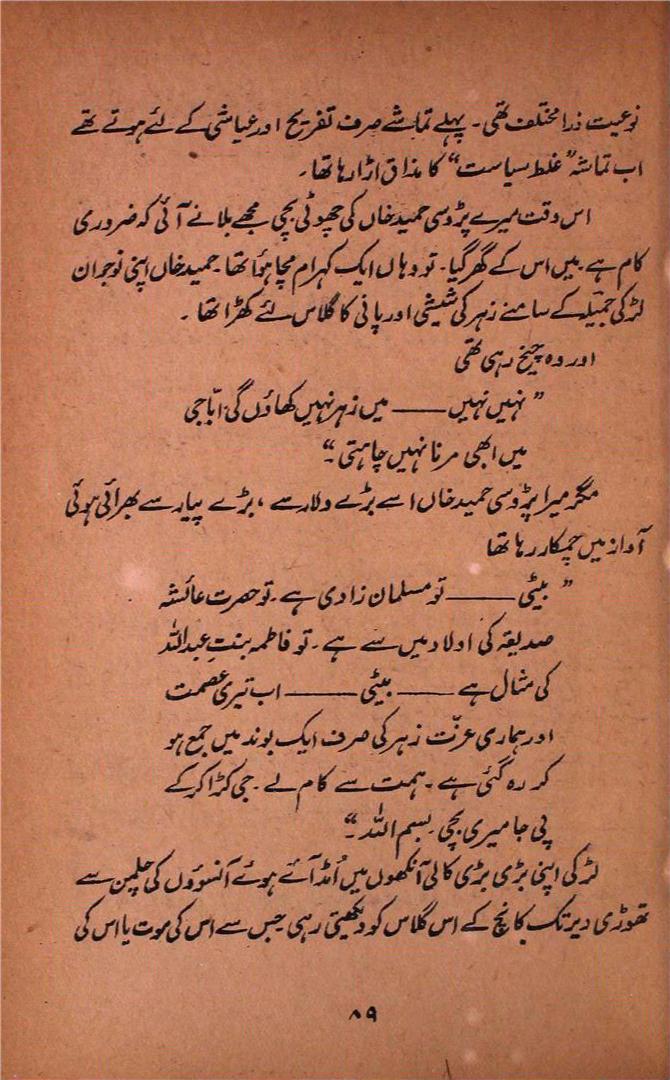 نوعیت ذرا مختلف تھی۔ پہلے تماشے صرف تفریح اور عیاشی کے لئے ہوتے تھے
اب تماشہ ”غلط سیاست“ کا مذاق اڑا رہا تھا۔
اس وقت میرے پڑوسی حمید خاں کی چھوٹی بچی مجھے بلانے آئی کہ ضروری
کام ہے۔ میں اس کے گھر گیا۔ تو وہاں ایک کہرام مچا ہوا تھا۔ حمید خاں اپنی نوجوان
لڑکی جمیلہ کے سامنے زہر کی شیشی اور پانی کا گلاس لئے کھڑا تھا۔
اور وہ چیخ رہی تھی
”نہیں نہیں —— میں زہر نہیں کھاؤں گی اباجی
میں ابھی مرنا نہیں چاہتی۔“
مگر میرا پڑوسی حمید خاں اسے بڑے دلار سے، بڑے پیار سے بھرائی ہوئی
آواز میں چمکار رہا تھا
”بیٹی —— تو مسلمان زادی ہے۔ تو حضرت عائشہ
صدیقہ کی اولاد میں سے ہے۔ تو فاطمہ بنتِ عبداللہ
کی مثال ہے —— بیٹی —— اب تیری عصمت
اور ہماری عزّت زہر کی صرف ایک بوند میں جمع ہو
کر رہ گئی ہے۔ ہمت سے کام لے۔ جی کڑا کر کے
پی جا میری بچی۔ بسم اللہ۔“
لڑکی اپنی بڑی بڑی کالی آنکھوں میں اُمڈ آئے ہوئے آنسوؤں کی چلمن سے
تھوڑی دیر تک کانچ کے اس گلاس کو دیکھتی رہی جس سے اس کی موت یا اس کی
۸۹